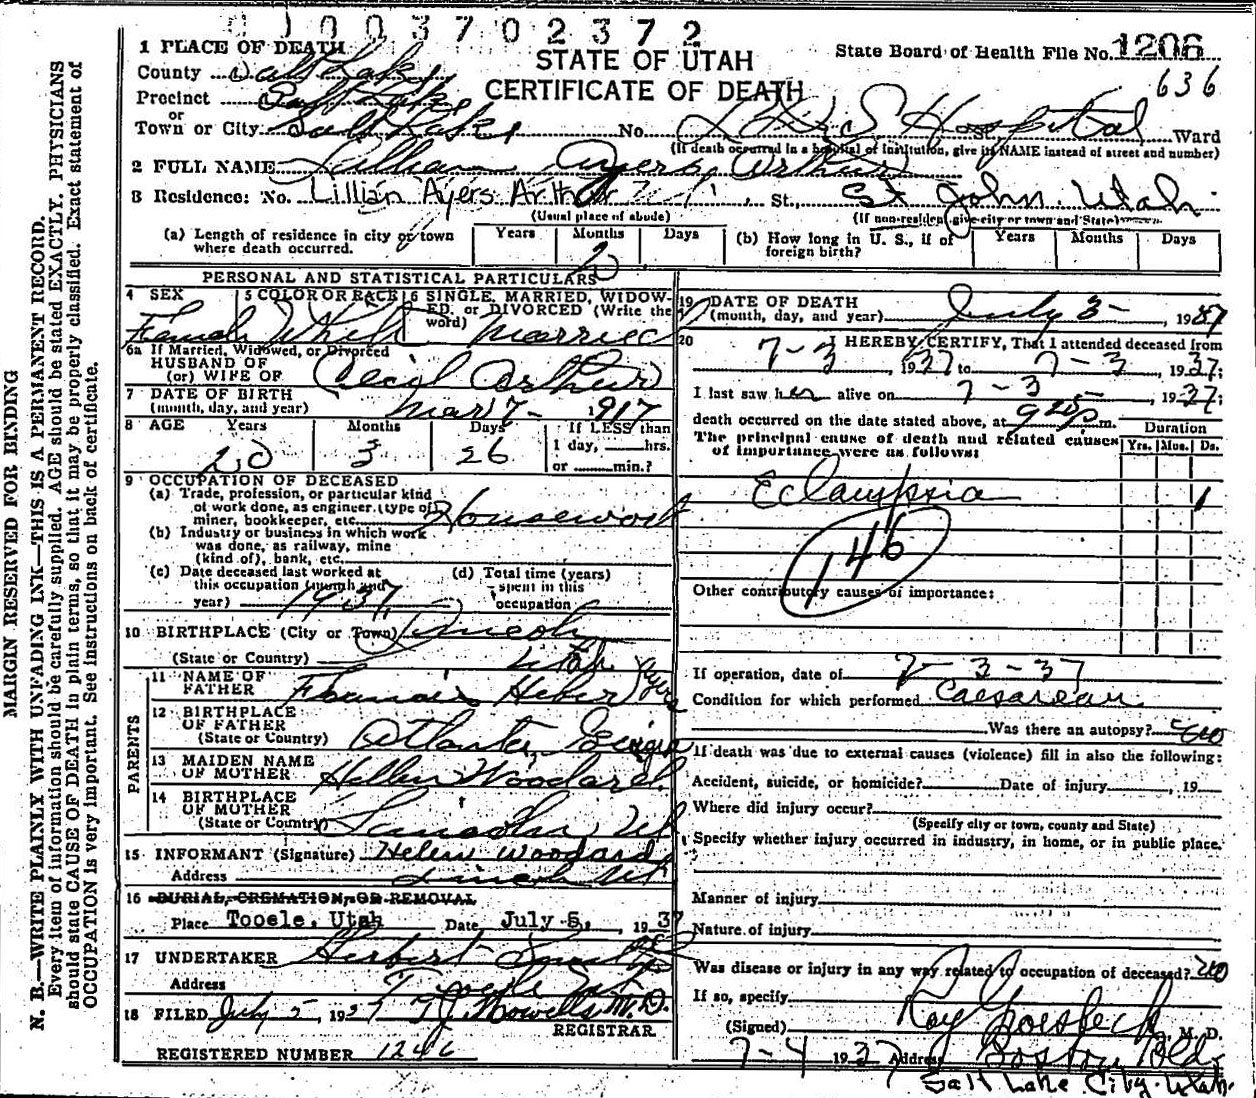 0 1 0 0 3 7 0 2 3 7 2
1 PLACE OF DEATH
STATE OF UTAH
CERTIFICATE OF DEATH
State Board of Health File No. 1206
636
County Salt Lake
Precinct Salt Lake
or
Town or City Salt Lake No. L.D.S Hospital St. Ward
(If death occurred in a hospital or institution, give its NAME instead of street and number)
2 FULL NAME Lillian Ayers Arthur
3 Residence: No. Lillian Ayers Arthur St., St John. Utah
(Usual place of abode) (If non-resident give city or town and State)
(a) Length of residence in city or town where death occurred. Years Months Days 2
(b) How long in U. S., if of foreign birth? Years Months Days
PERSONAL AND STATISTICAL PARTICULARS
4 SEX Female
5 COLOR OR RACE White
6 SINGLE, MARRIED, WIDOWED, or DIVORCED (Write the word) Married
6a If Married, Widowed, or Divorced
HUSBAND OF
(or) WIFE OF Cecil Arthur
7 DATE OF BIRTH
(month, day, and year) Mar 7- 1917
8 AGE Years 20 Months 3 Days 26 If LESS than 1 day, hrs. or min.?
9 OCCUPATION OF DECEASED
(a) Trade, profession, or particular kind of work done, as engineer (type of) miner, bookkeeper, etc. Housework
(b) Industry or business in which work was done, as railway, mine (kind of), bank, etc.
(c) Date deceased last worked at this occupation (month and year) 1937
(d) Total time (years) spent in this occupation
10 BIRTHPLACE (City or Town) Lincoln
(State or Country) Utah
PARENTS
11 NAME OF FATHER Francis Heber Ayers
12 BIRTHPLACE OF FATHER
(State or Country) Atlanta, Georgia
13 MAIDEN NAME OF MOTHER Hellen Woodard
14 BIRTHPLACE OF MOTHER
(State or Country) Lincoln, Ut
15 INFORMANT (Signature) Helen Woodard
Address Lincoln Ut
16 BURIAL, CREMATION, OR REMOVAL
Place Tooele, Utah Date July 5, 1937
17 UNDERTAKER Herbert
Address Tooele Ut
18 FILED July 5, 1937 T.J. Howells M.D.
REGISTRAR
REGISTERED NUMBER 1246
19 DATE OF DEATH
(month, day, and year) July 3- , 1937
20 I HEREBY CERTIFY, That I attended deceased from
7-3 , 1937 to 7-3 , 1937;
I last saw her alive on 7-3 , 1937;
death occurred on the date stated above, at 9 20 p m.
The principal cause of death and related causes of importance were as follows:
Duration
Yrs. Mos. Ds.
Eclampsia 1
146
Other contributory causes of importance:
If operation, date of 7-3-37
Condition for which performed Caesarean
Was there an autopsy? no
If death was due to external causes (violence) fill in also the following:
Accident, suicide, or homicide? Date of injury , 19
Where did injury occur?
(Specify city or town, county and State)
Specify whether injury occurred in industry, in home, or in public place.
Manner of injury
Nature of injury
Was disease or injury in any way related to occupation of deceased? no
If so, specify
(Signed) Roy Groesbeck M. D.
7-4 1937 Address Boston Bld
Salt Lake City. Utah.
MARGIN RESERVED FOR BINDING
N. B.—WRITE PLAINLY WITH UNFADING INK—THIS IS A PERMANENT RECORD.
Every item of information should be carefully supplied. AGE should be stated EXACTLY. PHYSICIANS
should state CAUSE OF DEATH in plain terms, so that it may be properly classified. Exact statement of
OCCUPATION is very important. See instructions on back of certificate.